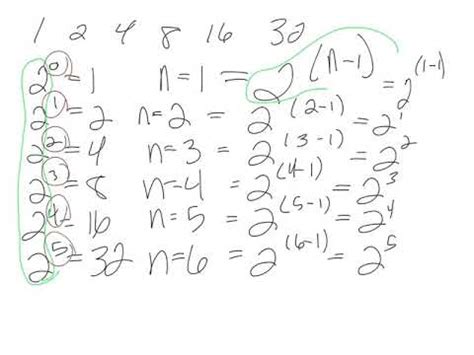 1 2 4 8 16 32
2^0 = 1 n=1 = 2^(n-1) = 2^(1-1)
2^1 = 2 n=2 = 2^(2-1) = 2^1
2^2 = 4 n=3 = 2^(3-1) = 2^2
2^3 = 8 n=4 = 2^(4-1) = 2^3
2^4 = 16 n=5 = 2^(5-1) = 2^4
2^5 = 32 n=6 = 2^(6-1) = 2^5